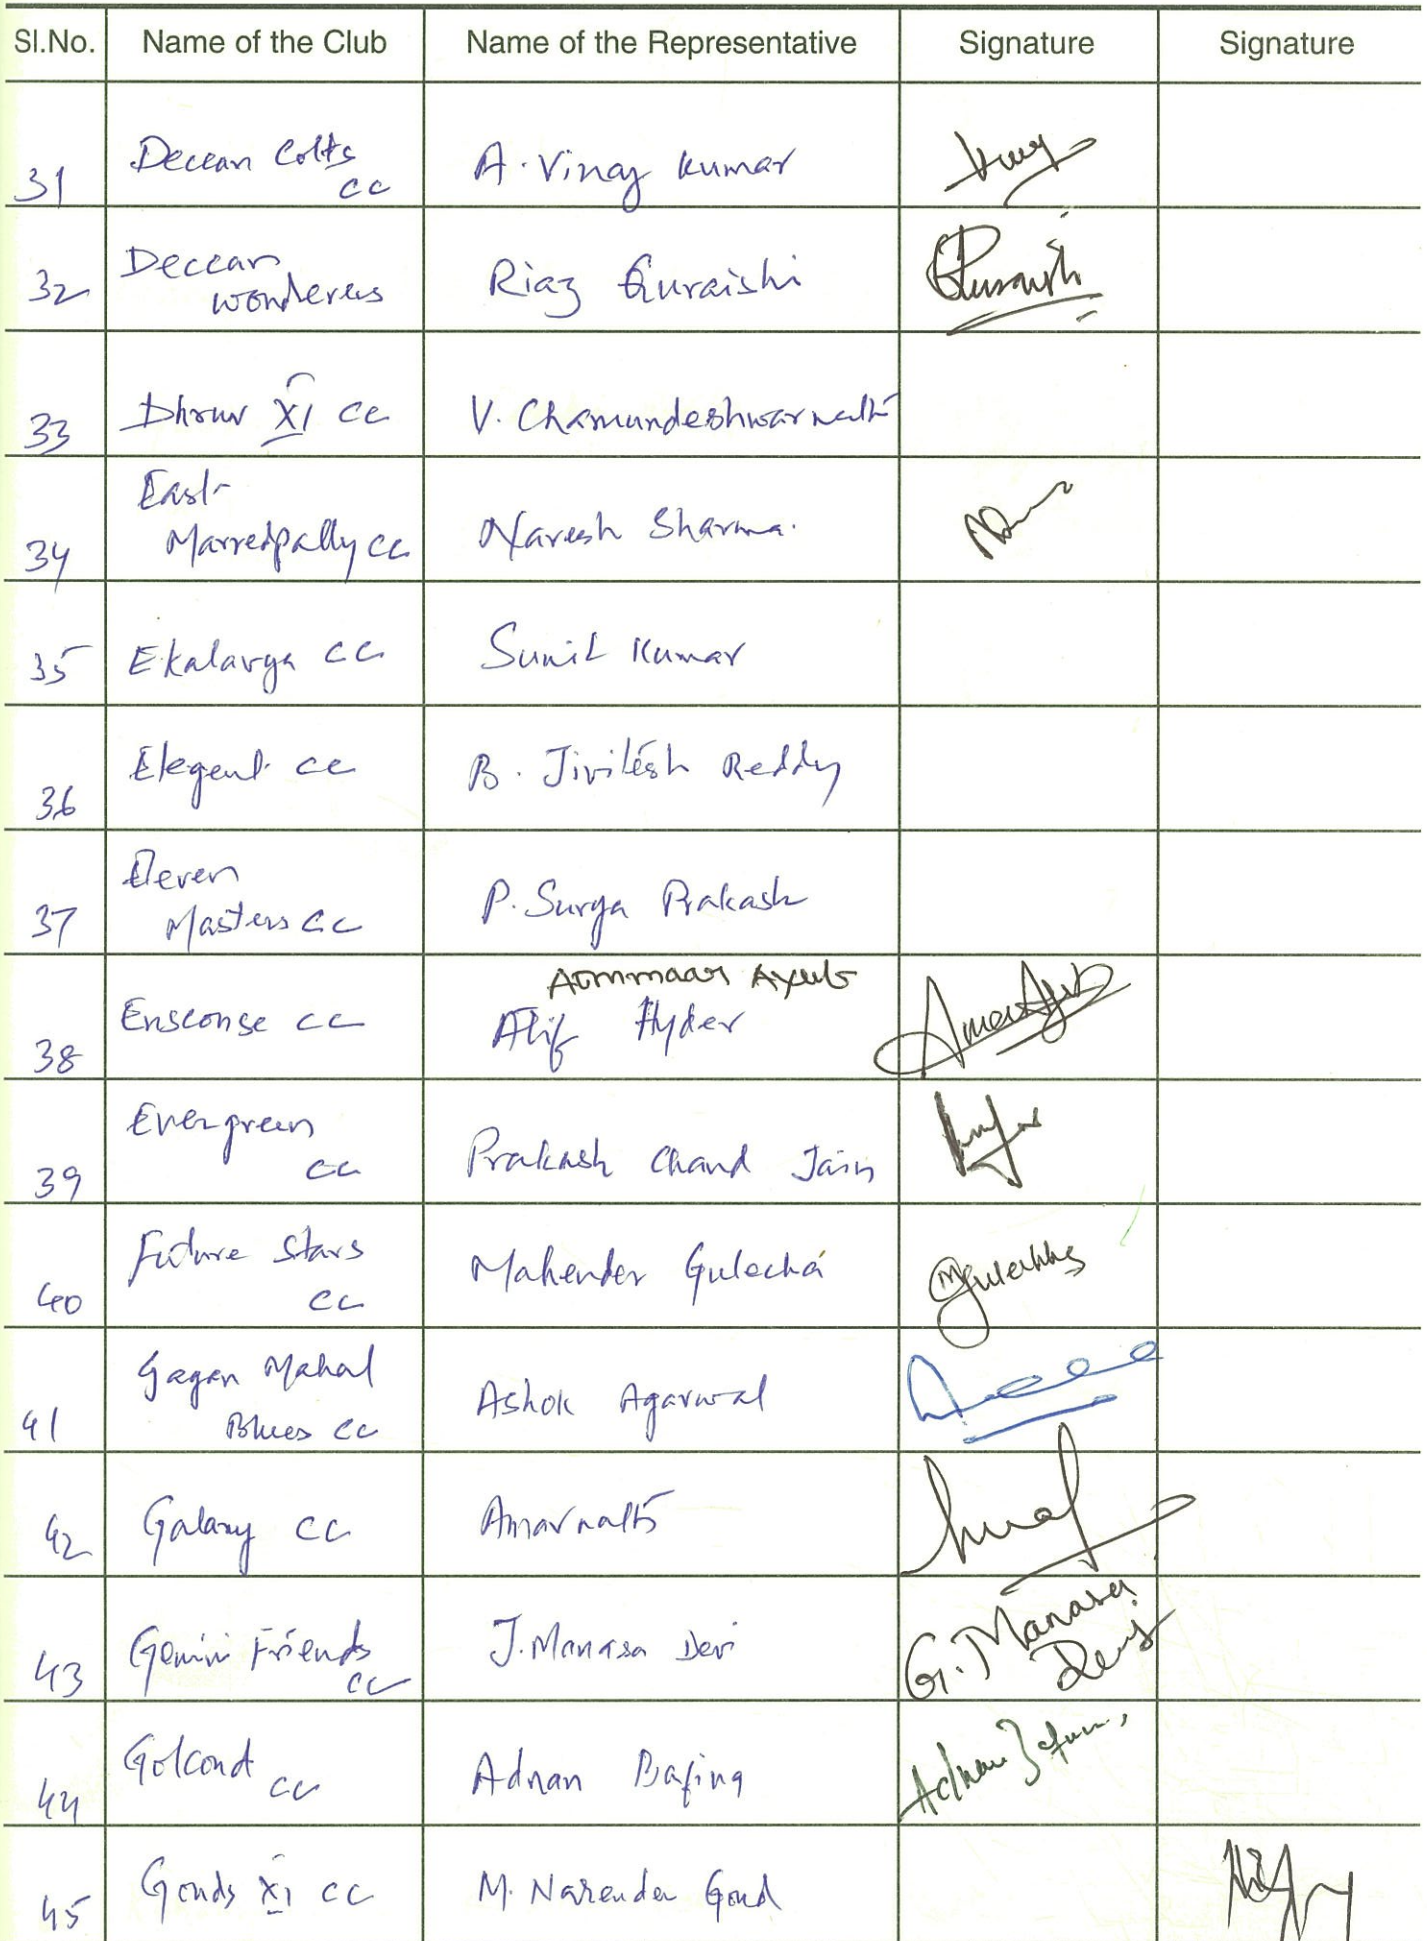 Sl.No. Name of the Club Name of the Representative Signature Signature
31 Deccan Colts CC A. Vinay Kumar
32 Deccan Wonderers Riaz Quraishi
33 Dhruv XI CC V. Chamundeshwarnath
34 East Marredpally CC Naresh Sharma.
35 Ekalavya CC Sunil Kumar
36 Elegent CC B. Jivitesh Reddy
37 Eleven Masters CC P. Surya Prakash
Ammaar Ayub
38 Ensconse CC Atif Hyder
39 Evergreen CC Prakash Chand Jain
40 Future Stars CC Mahender Gulecha
41 Gagan Mahal Blues CC Ashok Agarwal
42 Galaxy CC Amarnath
43 Gemini Friends CC J. Manasa Devi G. Manasa Devi
44 Golcond CC Adnan Adnan
45 Gouds XI CC M. Narender Goud